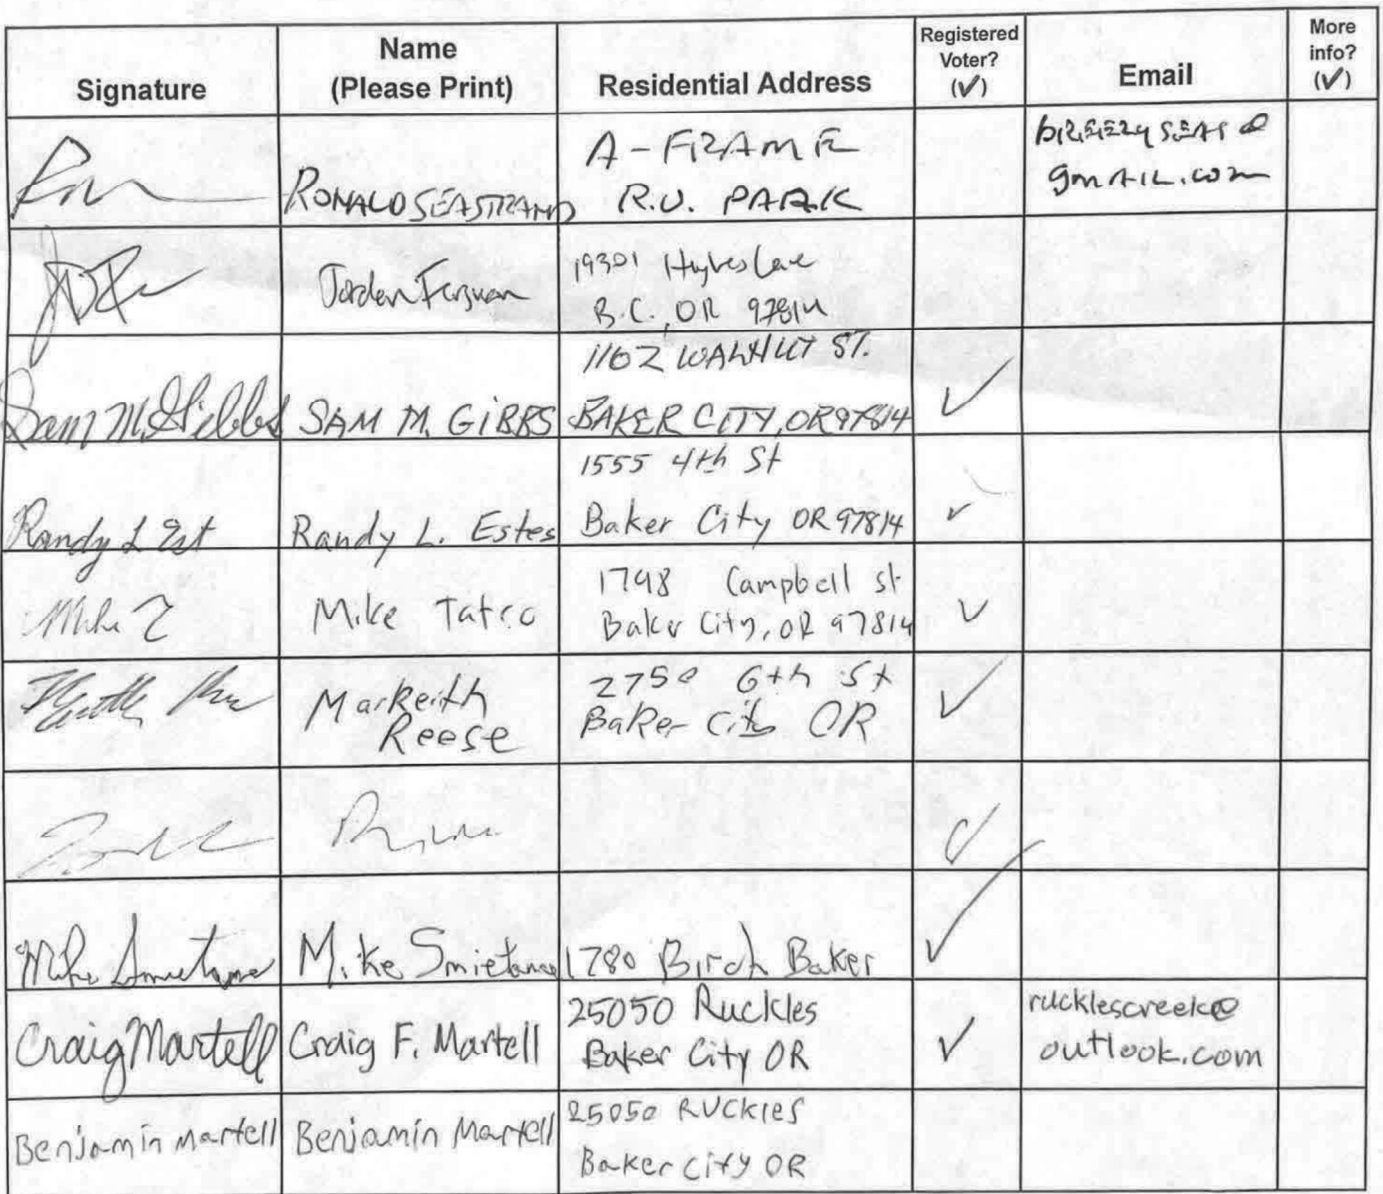 Signature
Name
(Please Print)
Residential Address
Registered
Voter?
(✓)
Email
More
info?
(✓)
RONALD SEASTRAND
A-FRAME
R.V. PARK
gmail.com
Jorden
19301
B.C. OR 97814
Sam M. Gibbs
SAM M. GIBBS
1162 WALNUT ST.
BAKER CITY, OR 97814
✓
Randy L Est
Randy L. Estes
1555 4th St
Baker City OR 97814
✓
Mike
Mike Tatro
1798 Campbell St
Baker City, OR 97814
✓
Markeith
Reese
2750 6th St
Baker City OR
✓
✓
Mike Smietana
Mike Smietana
1780 Birch Baker
✓
Craig Martell
Craig F. Martell
25050 Ruckles
Baker City OR
✓
rucklescreek@
outlook.com
Benjamin Martell
Benjamin Martell
25050 Ruckles
Baker City OR